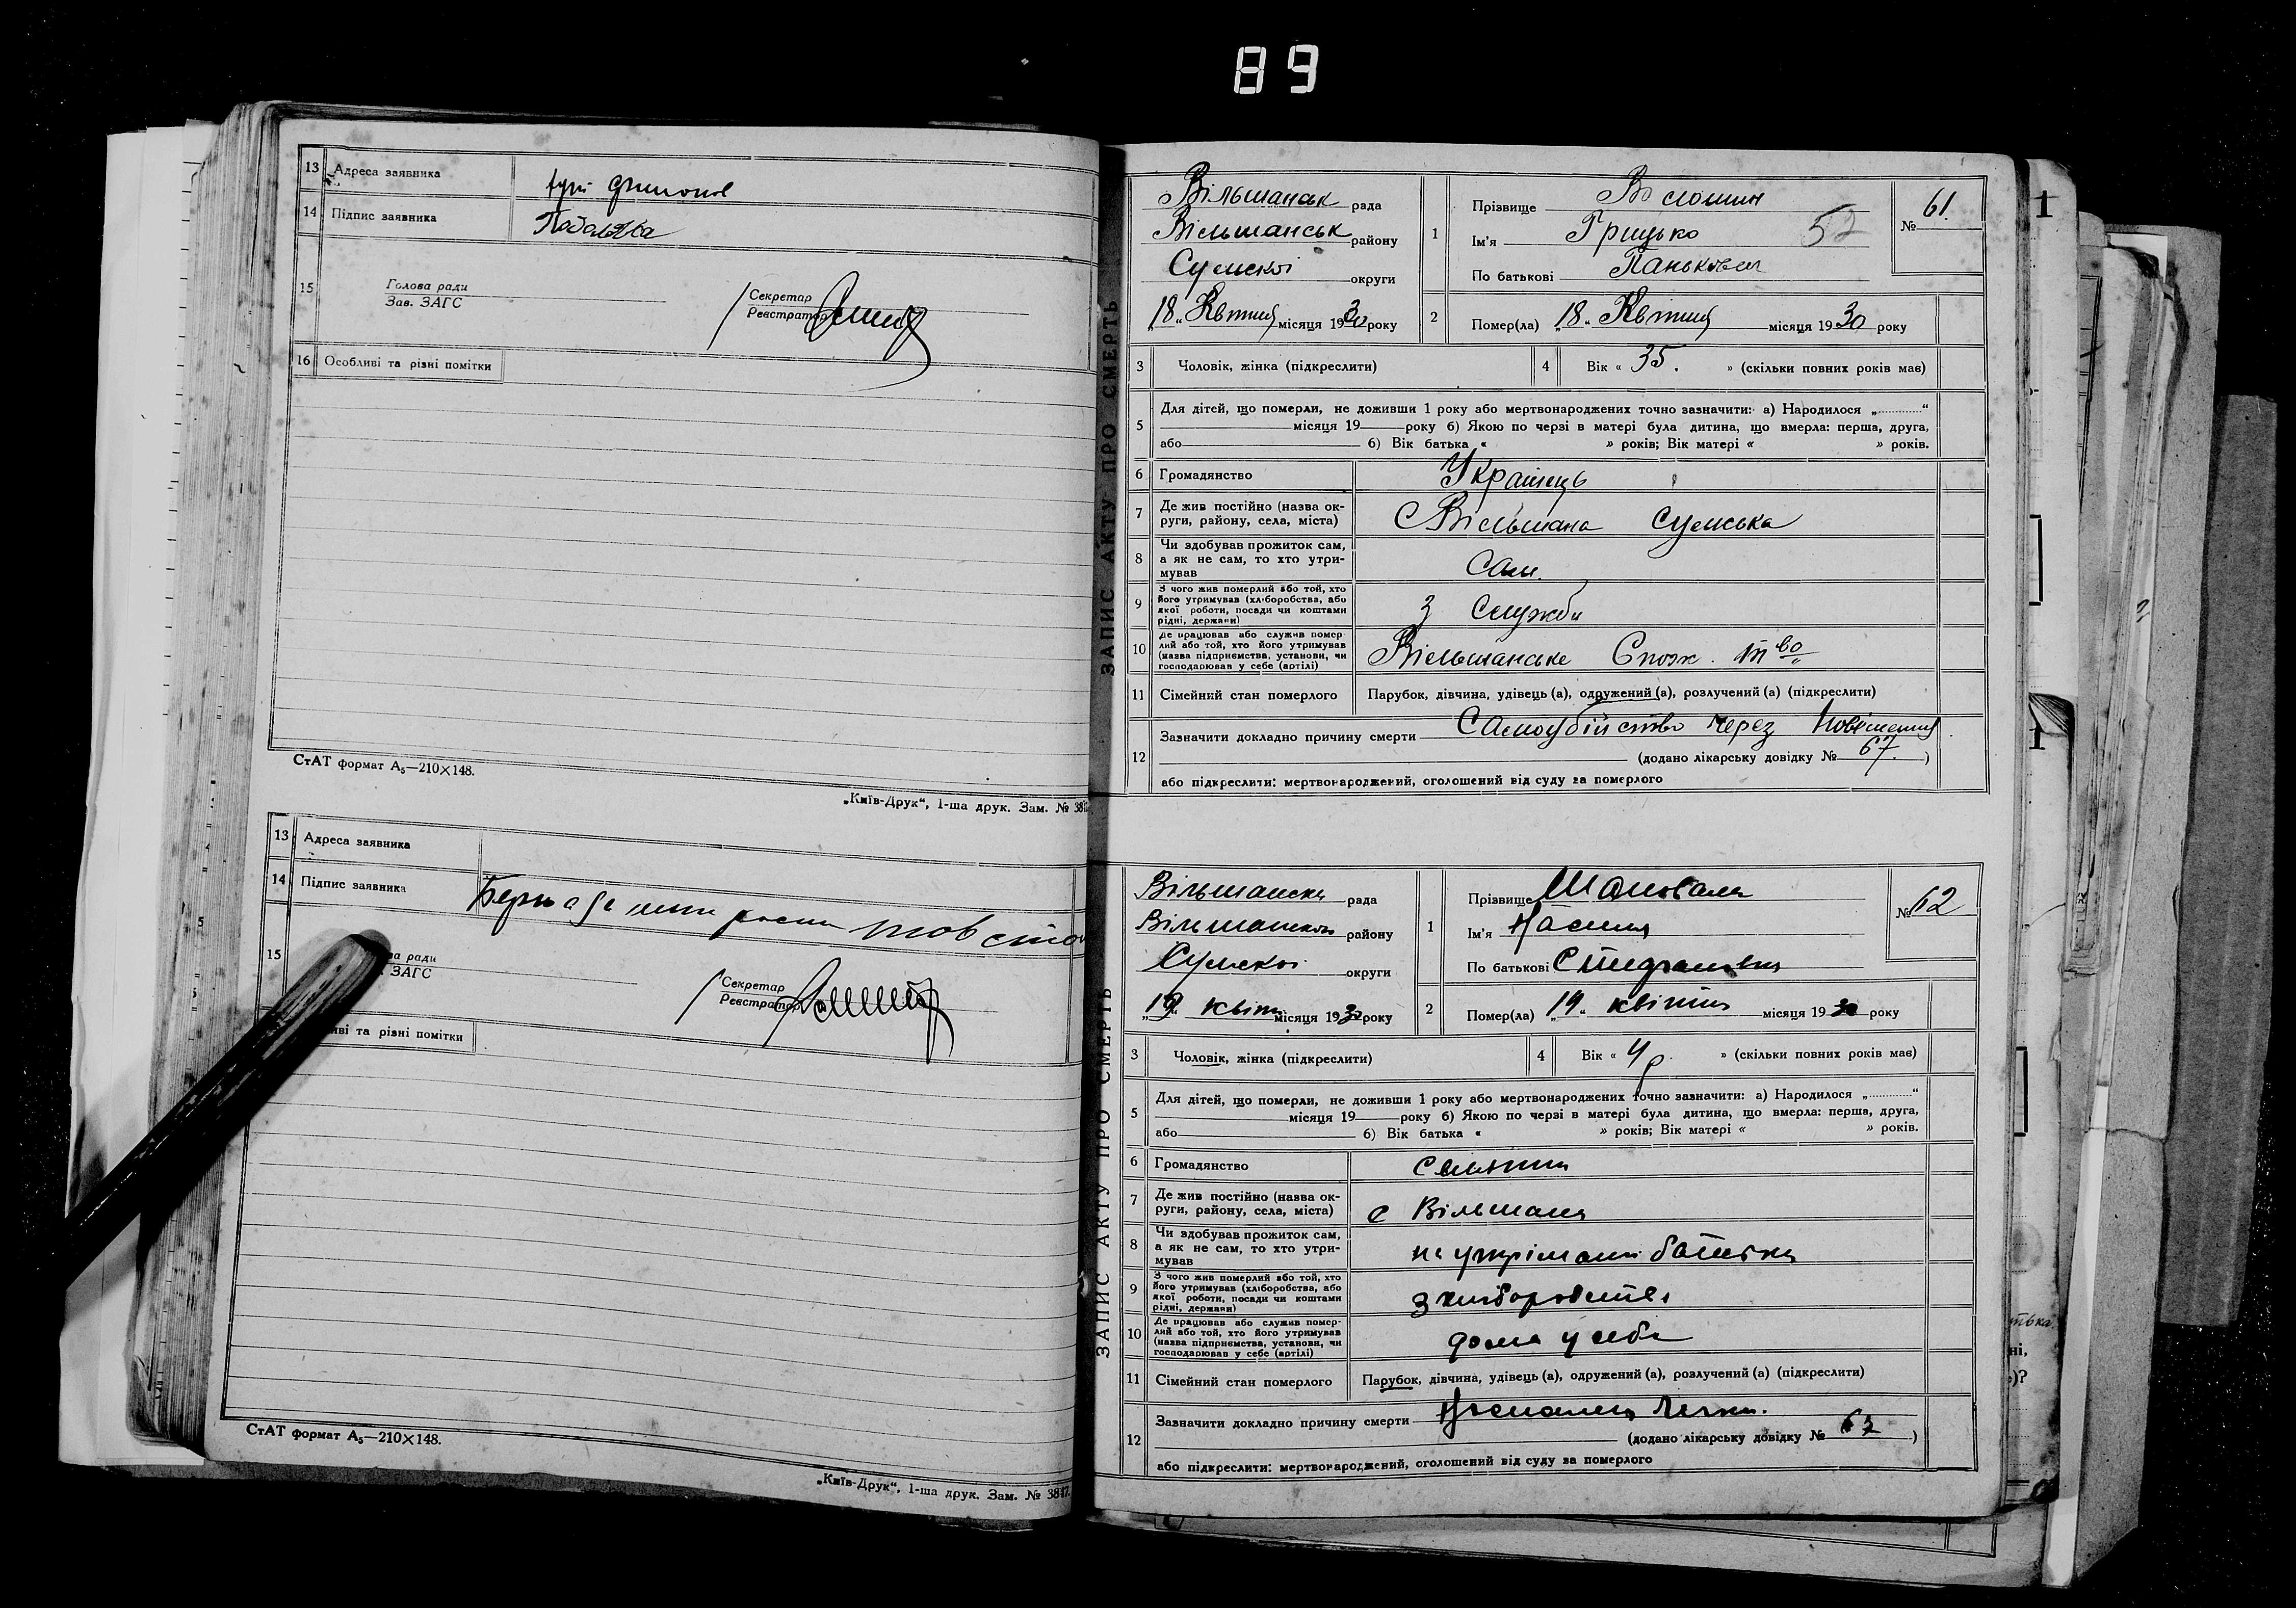 89
13 Адреса заявника
14 Підпис заявника
15 Голова ради
Зав. ЗАГС
Секретар
Реєстратор
16 Особливі та різні помітки
СтАТ формат А5—210×148.
„Київ-Друк“, 1-ша друк. Зам. № 38
13 Адреса заявника
14 Підпис заявника
15 ва ради
ЗАГС
Секретар
Реєстратор
иві та різні помітки
СтАТ формат А5—210×148.
„Київ-Друк“, 1-ша друк. Зам. № 3847.
ЗАПИС АКТУ ПРО СМЕРТЬ
Вільшанськ рада
Вільшанськ району
Сумської округи
„18“ Квітня місяця 1930 року
1 Прізвище Волошин
Ім'я Грицько 52
По батькові Панькович
№ 61.
2 Помер(ла) „18“ Квітня місяця 1930 року
3 Чоловік, жінка (підкреслити)
4 Вік « 35. » (скільки повних років має)
5 Для дітей, що померли, не доживши 1 року або мертвонароджених точно зазначити: а) Народилося „............“
місяця 19 року б) Якою по черзі в матері була дитина, що вмерла: перша, друга,
або б) Вік батька « » років; Вік матері « » років.
6 Громадянство Українець
7 Де жив постійно (назва ок-
руги, району, села, міста) С Вільшана Сумська
8 Чи здобував прожиток сам,
а як не сам, то хто утри-
мував Сам.
9 З чого жив померлий або той, хто
його утримував (хліборобства, або
якої роботи, посади чи коштами
рідні, держави) З Служби
10 Де працював або служив помер-
лий або той, хто його утримував
(назва підприємства, установи, чи
господарював у себе (артілі) Вільшанське Спож. т-во
11 Сімейний стан померлого Парубок, дівчина, удівець (а), одружений (а), розлучений (а) (підкреслити)
12 Зазначити докладно причину смерти Самоубійство через повішення
(додано лікарську довідку № 67.)
або підкреслити: мертвонароджений, оголошений від суду за померлого
ЗАПИС АКТУ ПРО СМЕРТЬ
Вільшанська рада
Вільшанської району
Сумської округи
„19“ квітня місяця 1930 року
1 Прізвище Шаповала
Ім'я Настя
По батькові
№ 62
2 Помер(ла) „19“ квітня місяця 1930 року
3 Чоловік, жінка (підкреслити)
4 Вік « 4 р. » (скільки повних років має)
5 Для дітей, що померли, не доживши 1 року або мертвонароджених точно зазначити: а) Народилося „............“
місяця 19 року б) Якою по черзі в матері була дитина, що вмерла: перша, друга,
або б) Вік батька « » років; Вік матері « » років.
6 Громадянство
7 Де жив постійно (назва ок-
руги, району, села, міста) с Вільшана
8 Чи здобував прожиток сам,
а як не сам, то хто утри-
мував на утріманні батька
9 З чого жив померлий або той, хто
його утримував (хліборобства, або
якої роботи, посади чи коштами
рідні, держави) з хліборобства
10 Де працював або служив помер-
лий або той, хто його утримував
(назва підприємства, установи, чи
господарював у себе (артілі) дома у себе
11 Сімейний стан померлого Парубок, дівчина, удівець (а), одружений (а), розлучений (а) (підкреслити)
12 Зазначити докладно причину смерти
(додано лікарську довідку №)
або підкреслити: мертвонароджений, оголошений від суду за померлого